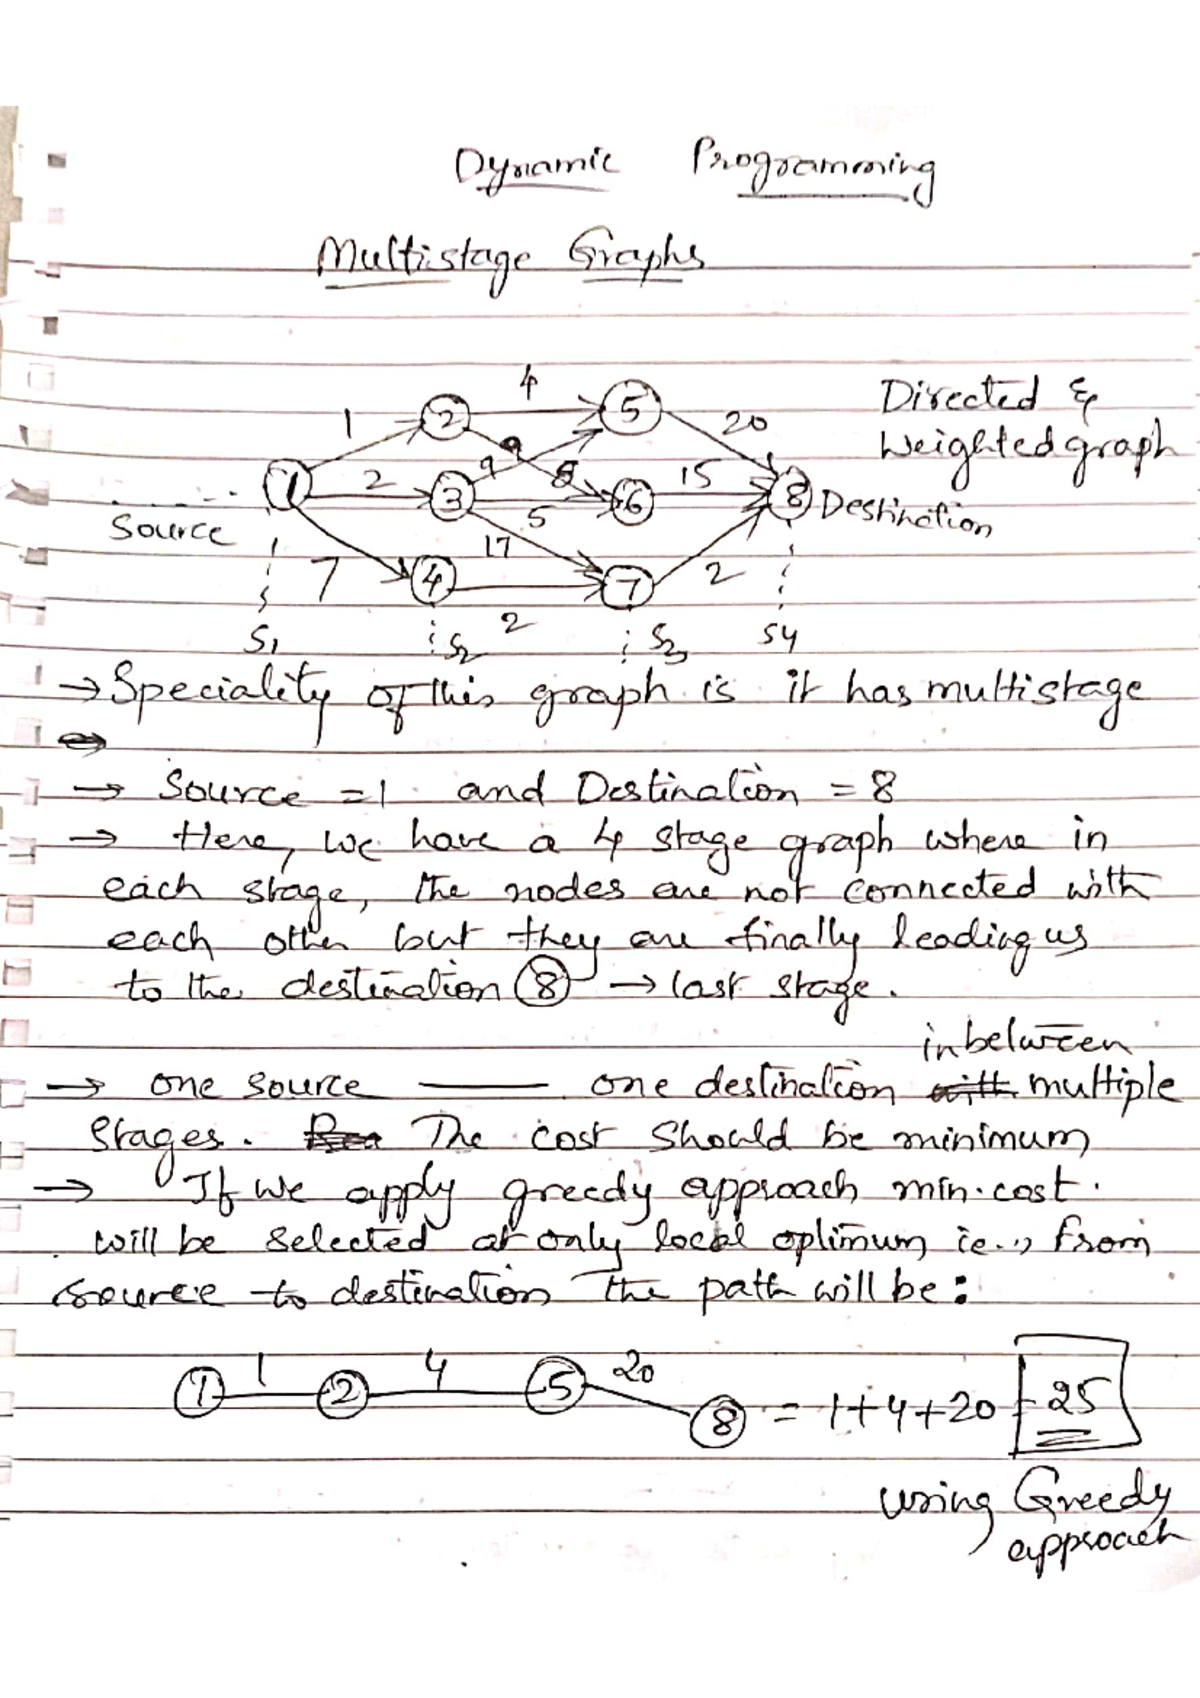 Dynamic Programming
Multistage Graphs
4
1 2 5 20
Directed &
Weighted graph
9 9 8
1 2 3 5 6 15 8 Destination
Source
17
7 4 2 7 2
S1 S2 S3 S4
→ Speciality of this graph is it has multistage
→ Source = 1 and Destination = 8
→ Here, we have a 4 stage graph where in
each stage, the nodes are not connected with
each other but they are finally leading us
to the destination 8 → last stage.
inbetween
→ one source —— one destination with multiple
stages. The cost should be minimum
→ If we apply greedy approach min. cost.
will be selected at only local optimum ie., from
source to destination the path will be:
1 4 20
1 2 5 8 = 1+4+20 = 25
using Greedy
approach